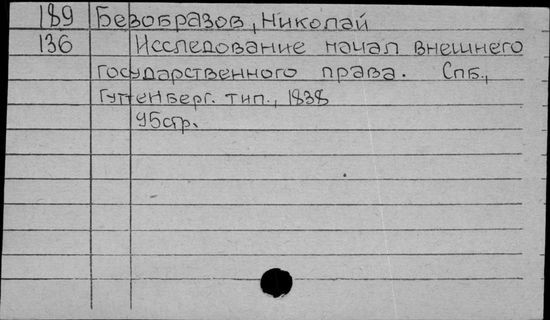 189 Безобразов, Николай
136 Исследование начал внешнего
государственного права. Спб.,
Гуттенберг. тип., 1838
95стр.